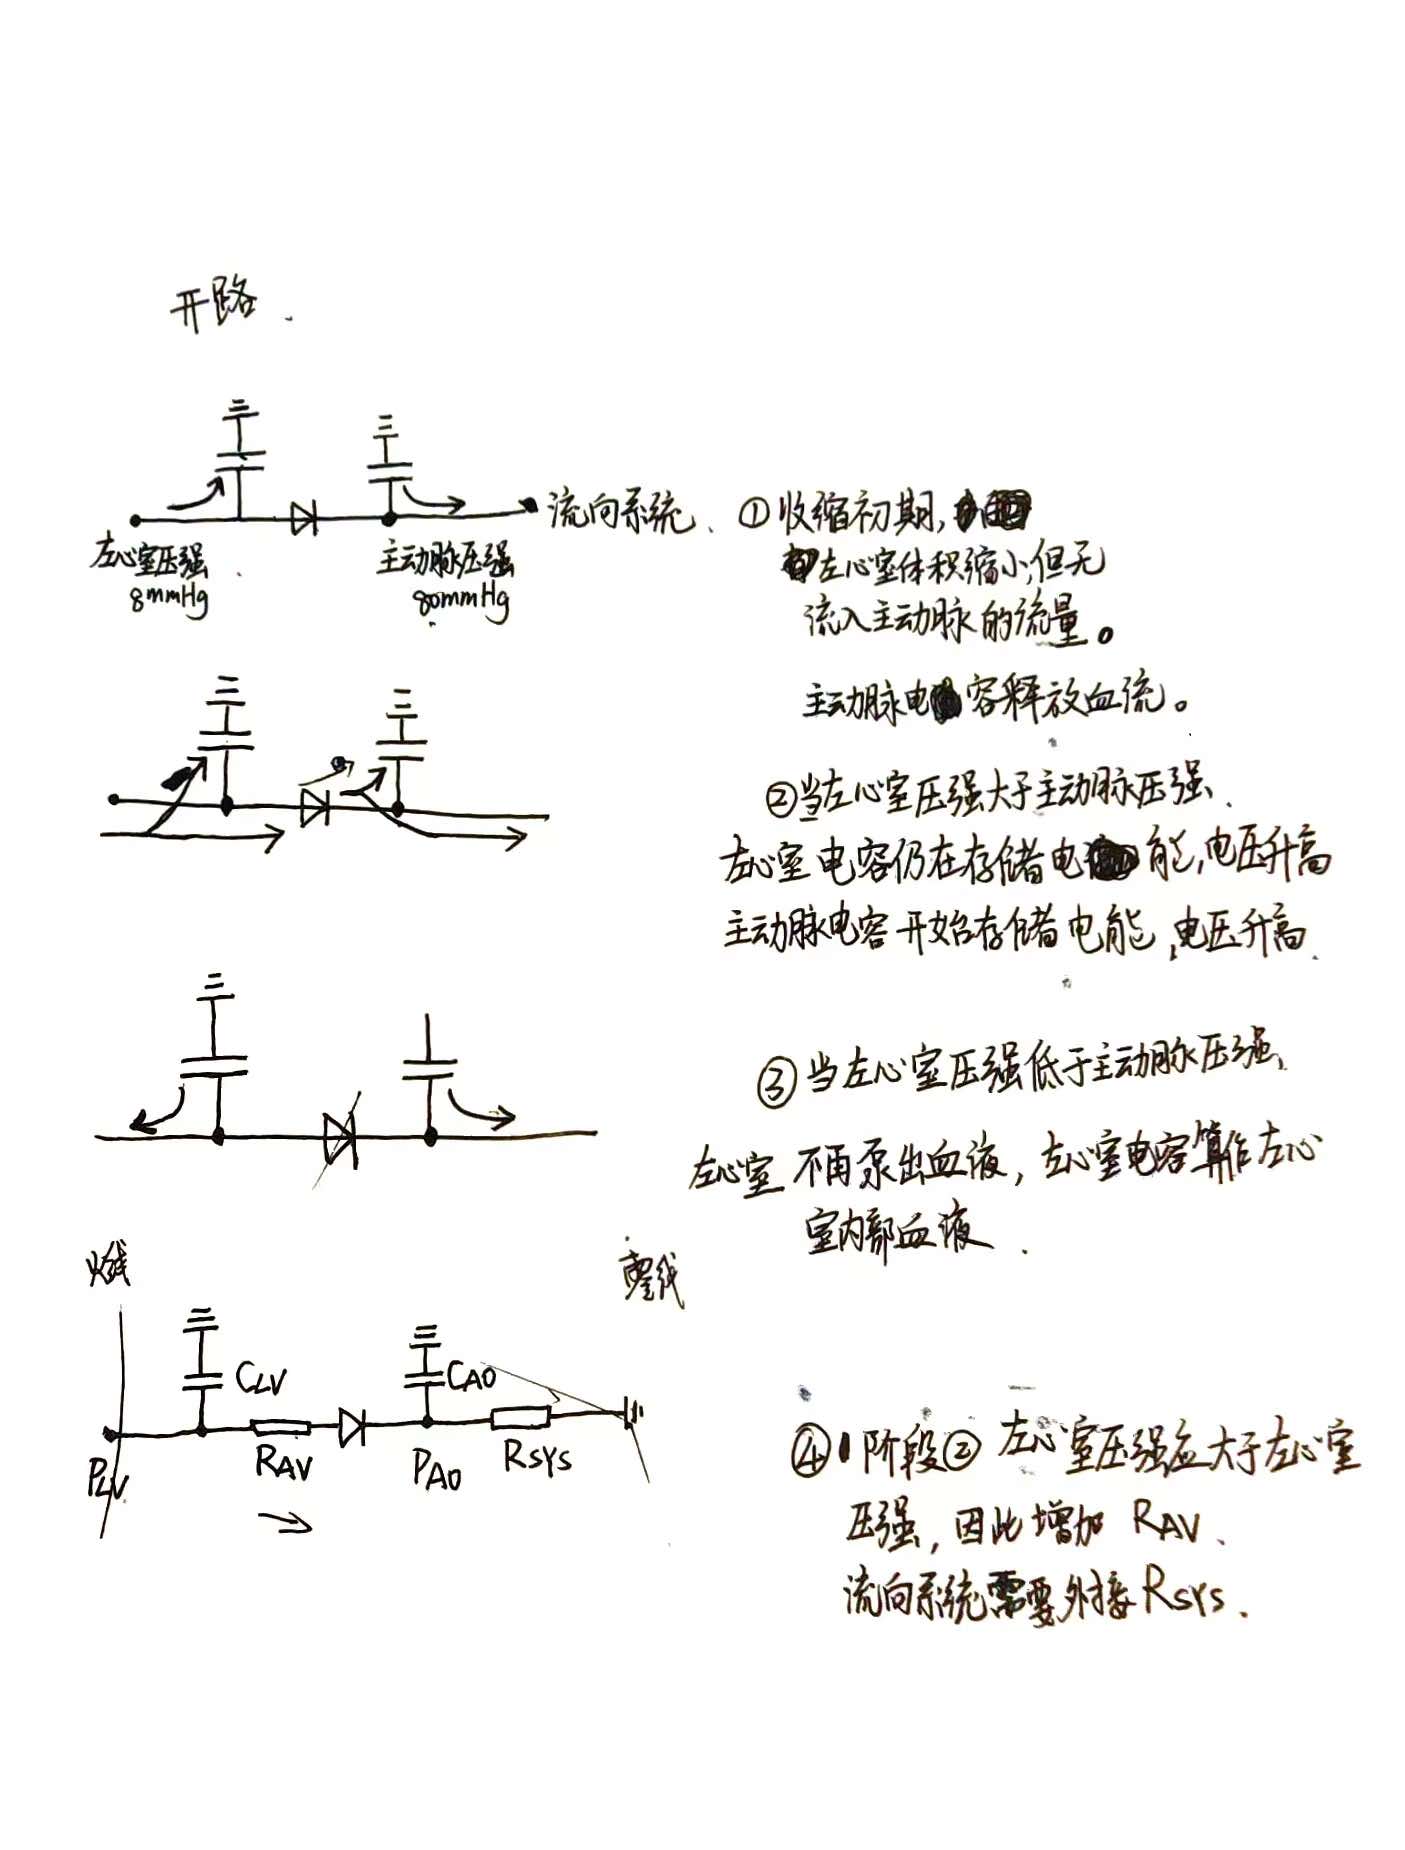 开路.
流向系统.
左心室压强
8mmHg
主动脉压强
80mmHg
①收缩初期,
左心室体积缩小,但无
流入主动脉的流量。
主动脉电容释放血流。
②当左心室压强大于主动脉压强.
左心室电容仍在存储电能,电压升高
主动脉电容开始存储电能,电压升高.
③当左心室压强低于主动脉压强.
左心室不再泵出血液,左心室电容算作左心
室内部血液.
火线
零线
CLV
CAO
PLV
RAV
PAO
RSYS
④阶段②左心室压强应大于左心室
压强,因此增加RAV.
流向系统需要外接RSYS.